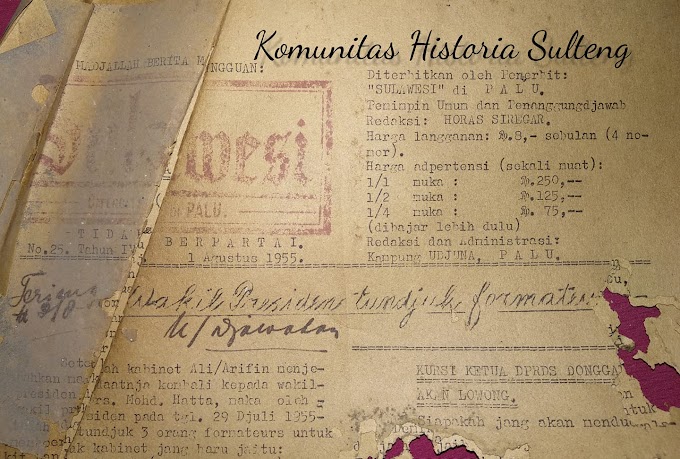 Komunitas Historia Sulteng
MADJALLAH BERITA M NGGUAN:
Sulawesi
DI PALU.
TIDA BERPARTAI.
No.25. Tahun IV 1 Agustus 1955.
Diterbitkan oleh Penerbit:
"SULAWESI" di P A L U.
Pemimpin Umum dan Penanggungdjawab
Redaksi: HORAS SIREGAR.
Harga langganan: Rp.8,- sebulan (4 no-
mor).
Harga adpertensi (sekali muat):
1/1 muka : Rp.250,--
1/2 muka : Rp.125,--
1/4 muka : Rp. 75,--
(dibajar lebih dulu)
Redaksi dan Administrasi:
Kampung UDJUNA, P A L U.
Wakil Presiden tundjuk formateur
Setelah kabinet Ali/Arifin menje-
ahkan mandaatnja kembali kepada wakil-
presiden Drs. Mohd. Hatta, maka oleh
wakil presiden pada tgl. 29 Djuli 1955-
tundjuk 3 orang formateurs untuk
kabinet jang baru jaitu:
KURSI KETUA DPRDS DONGGA
AKAN LOWONG.
Siapakah jang akan mendu